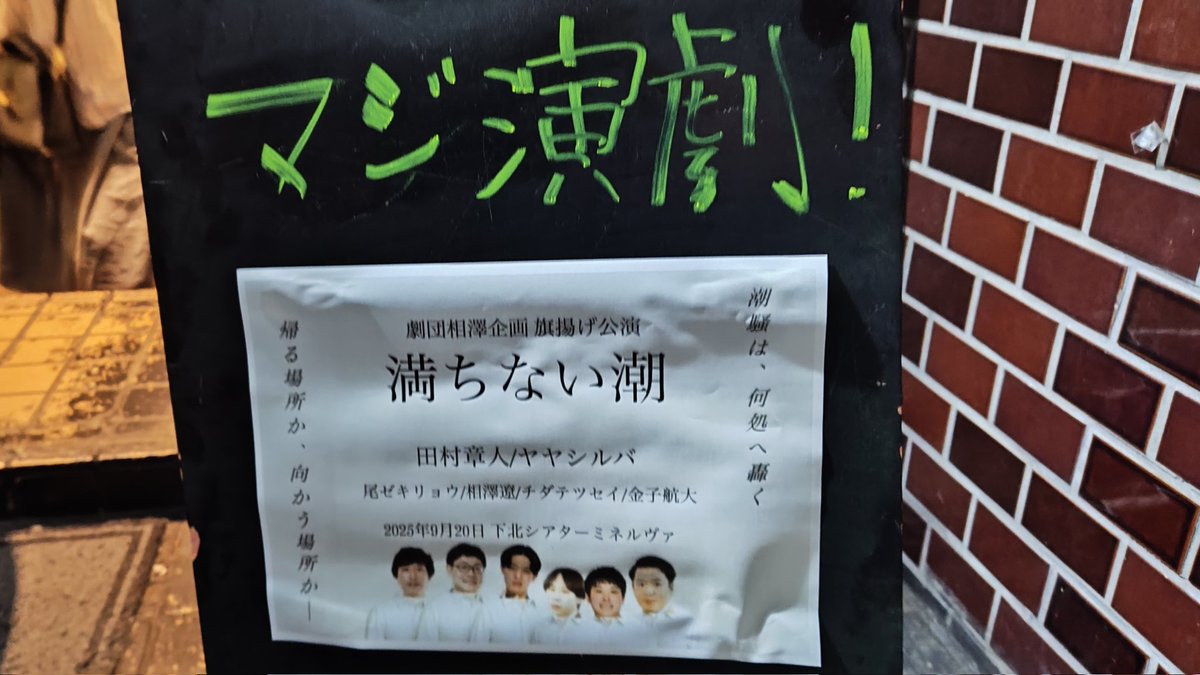 マジ演劇!
潮騒は、何処へ轟く
劇団相澤企画 旗揚げ公演
満ちない潮
田村章人/ヤヤシルバ
尾ゼキリョウ/相澤遼/チダテツセイ/金子航大
2025年9月20日 下北シアターミネルヴァ
帰る場所か、向かう場所か―